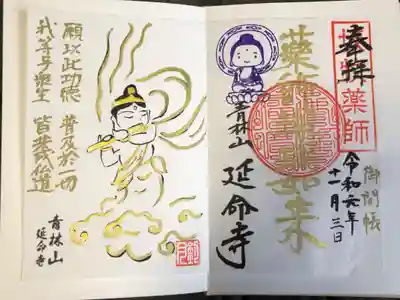 奉拝
薬師
御開帳
令和六年
十一月三日
薬師瑠璃光如来
青林山
延命寺
願以此功徳 普及於一切
我等与衆生 皆共成仏道
青林山
延命寺